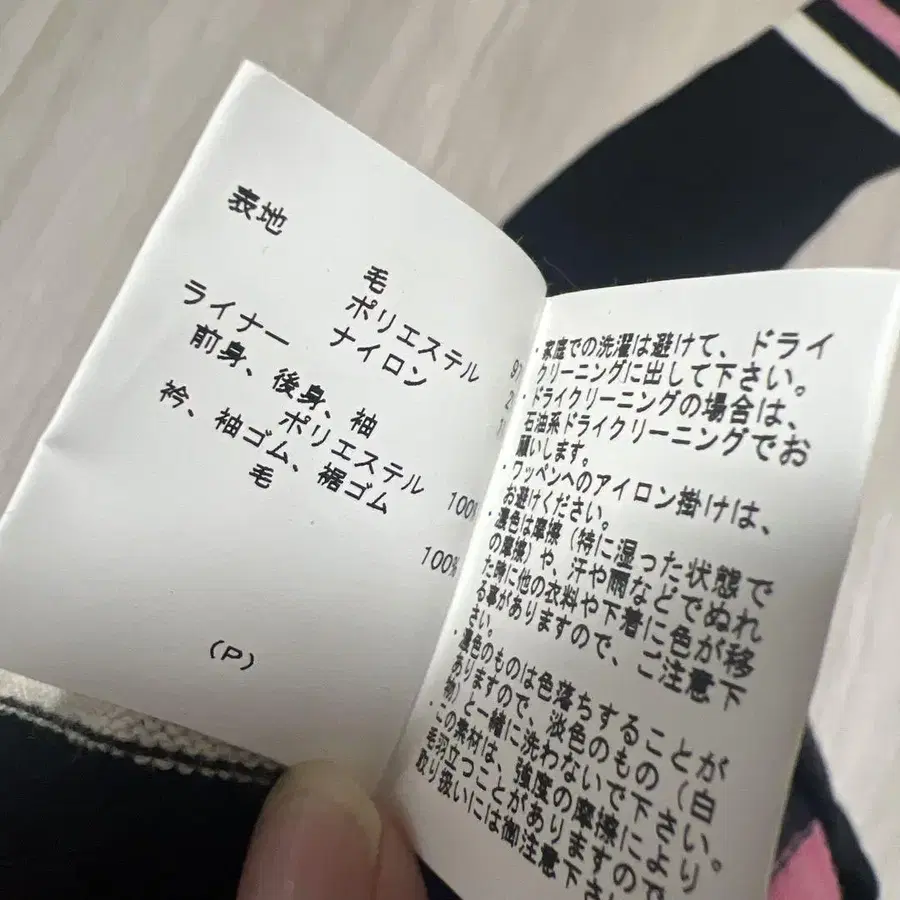 表地
毛 97
ポリエステル 2
ナイロン 1
ライナー
前身、後身、袖
ポリエステル 100%
衿、袖ゴム、裾ゴム
毛 100%
(P)
・家庭での洗濯は避けて、ドライ
クリーニングに出して下さい。
・ドライクリーニングの場合は、
石油系ドライクリーニングでお
願いします。
・ワッペンへのアイロン掛けは、
お避けください。
・濃色は摩擦(特に湿った状態で
の摩擦)や、汗や雨などでぬれ
た時に他の衣料や下着に色が移
る事がありますので、ご注意下
さい。
・濃色のものは色落ちすることが
ありますので、淡色のもの(白
物)と一緒に洗わないで下さい。
・この素材は、強度の摩擦により
毛羽立つことがありますので
取り扱いには御注意下さ